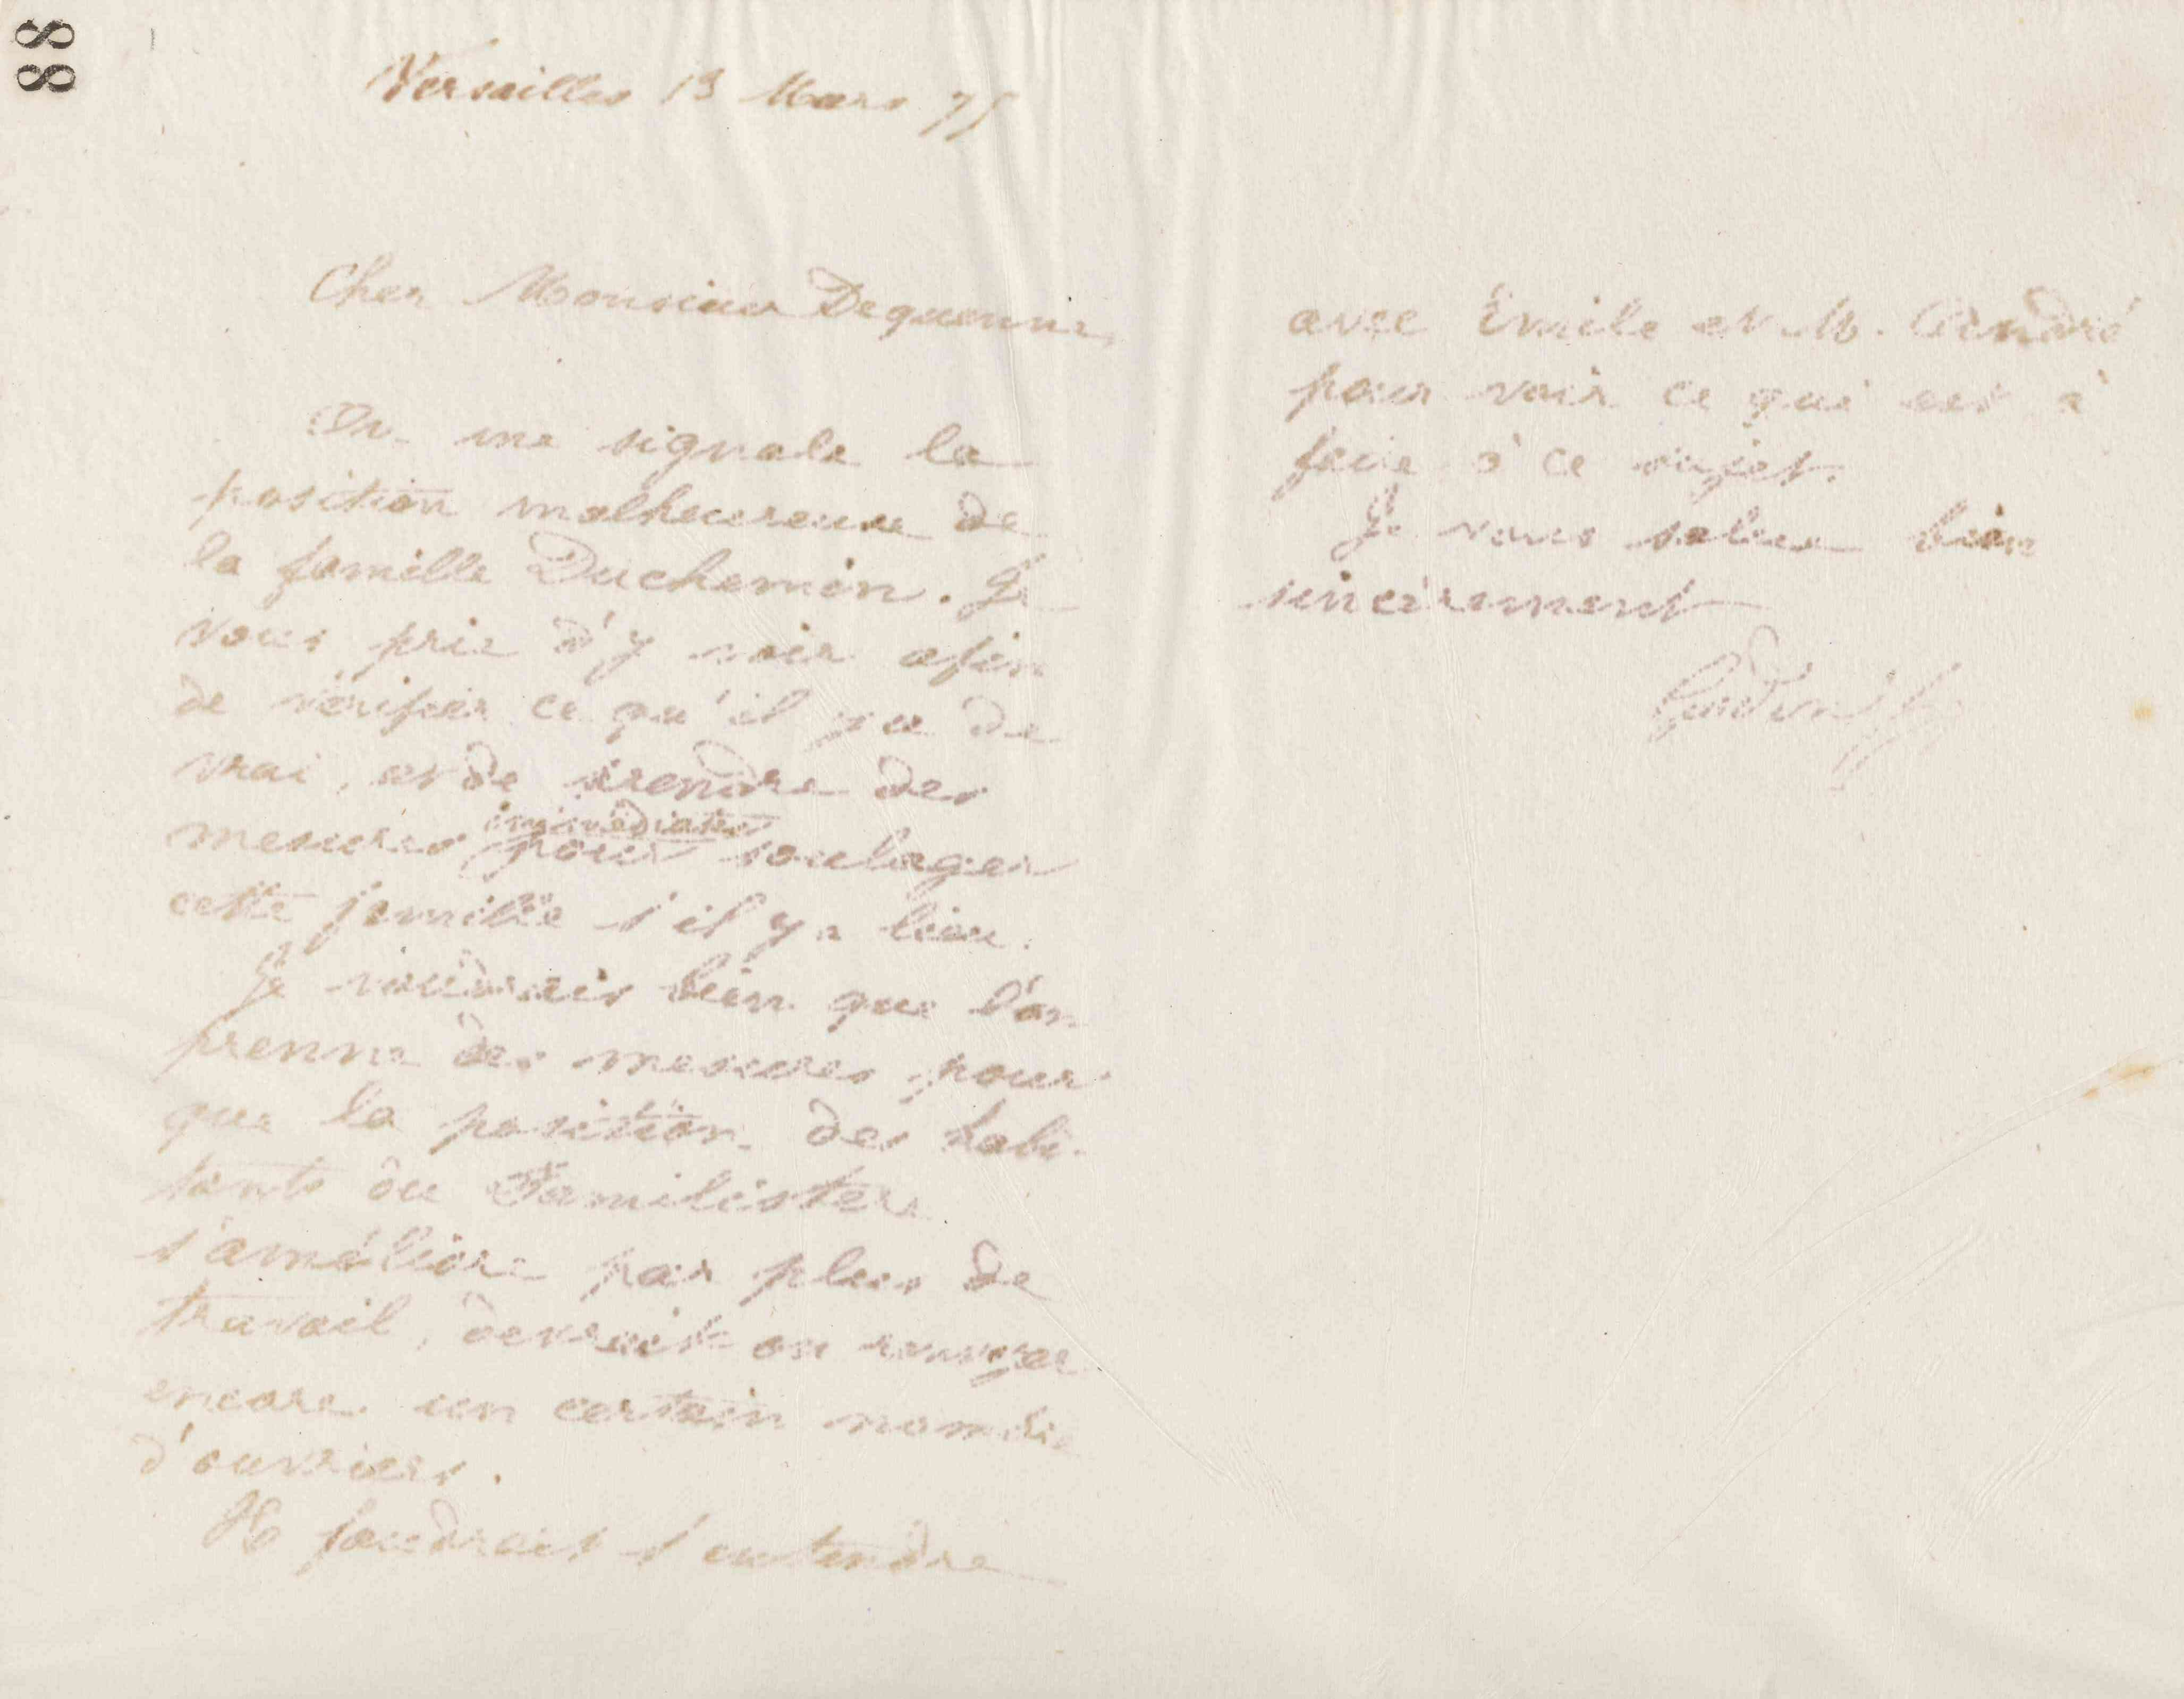 88
Versailles 13 Mars 75
Cher Monsieur Dequenne,
On me signale la
position malheureuse de
la famille Duchemin. Je
vous prie d'y voir afin
de vérifier ce qu'il y a de
vrai, et de prendre des
immédiates
mesures pour soulager
cette famille s'il y a lieu.
Je voudrais bien que l'on
prenne des mesures pour
que la position des habi-
tants du Familistère
s'améliore par plus de
travail, devrait on
encore un certain nombre
d'ouvriers.
Il faudrait s'entendre
avec Émile et M. André
pour voir ce qui est à
faire à ce sujet.
Je vous salue bien
sincèrement
Godin